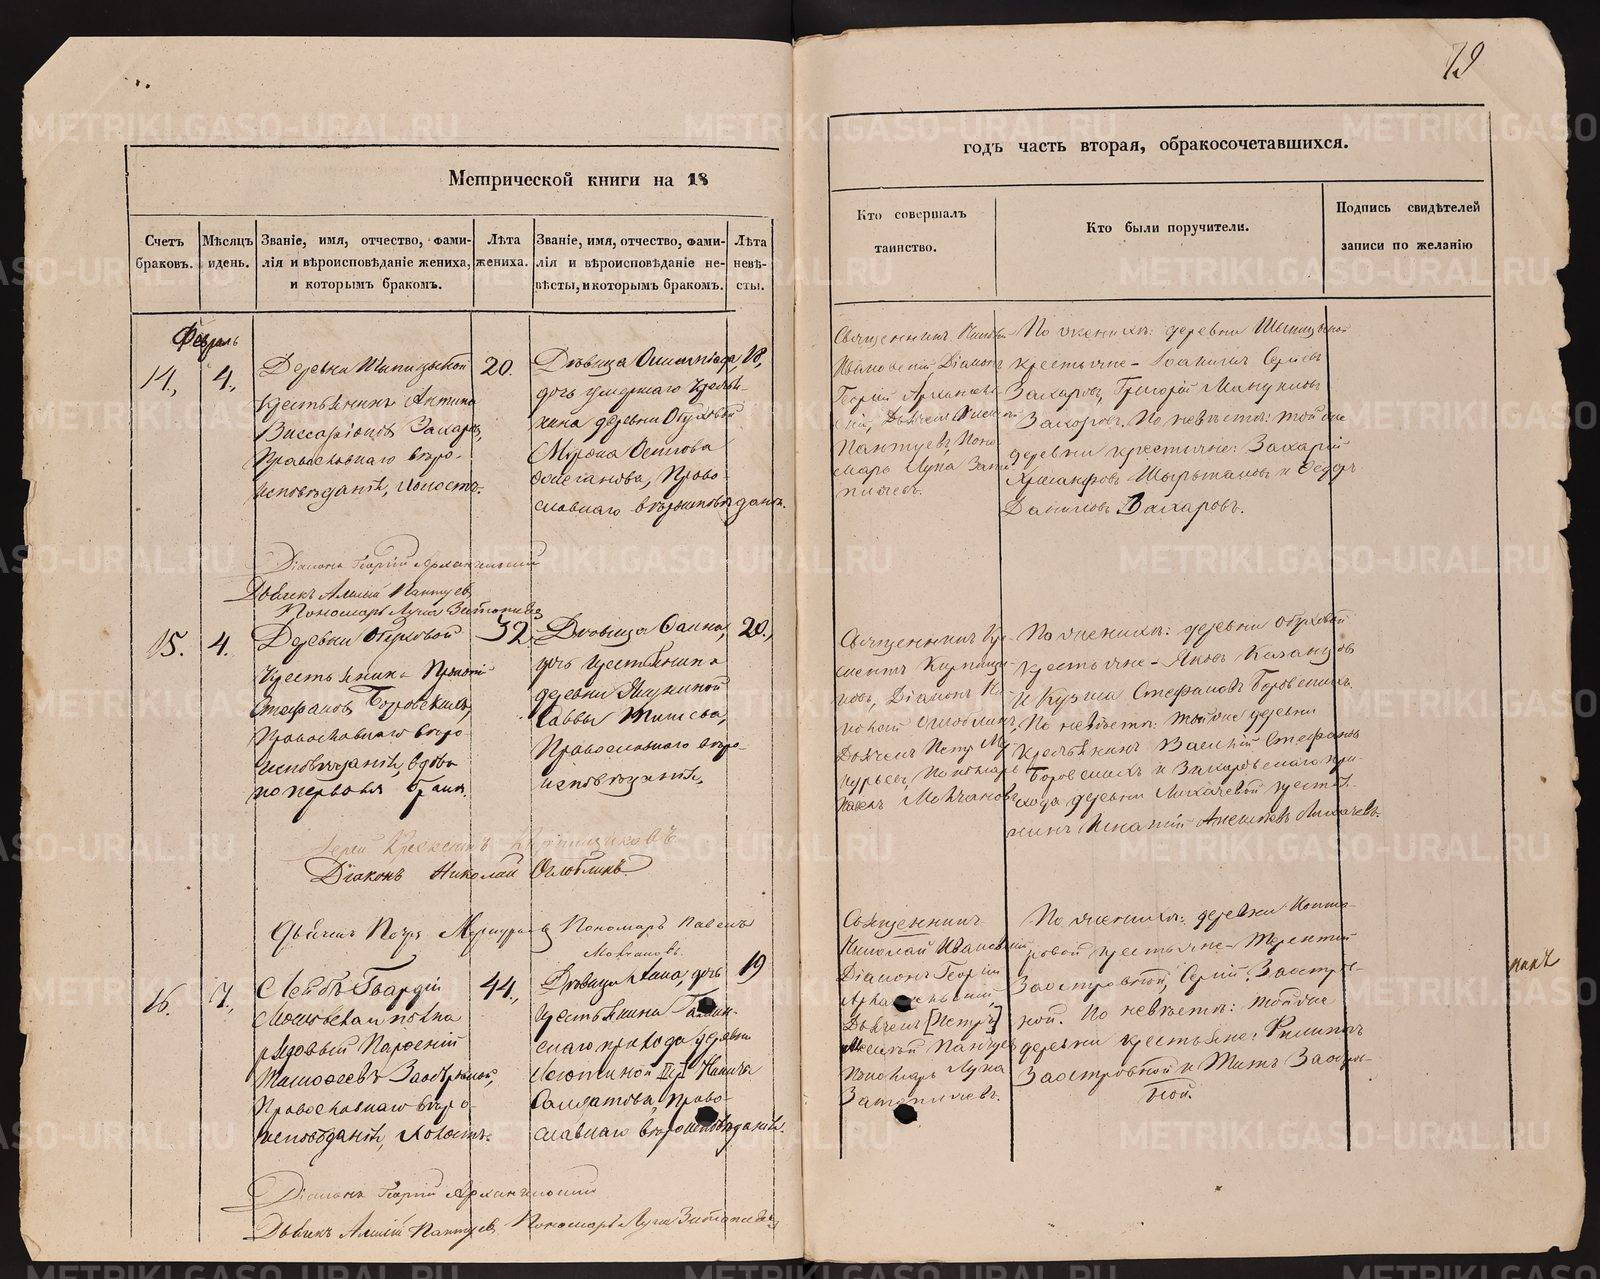 79
Метрической книги на 18
годъ часть вторая, обракосочетавшихся.
Счетъ браковъ.
Мѣсяцъ и день.
Званіе, имя, отчество, фами-
лія и вѣроисповѣданіе жениха,
и которымъ бракомъ.
Лѣта жениха.
Званіе, имя, отчество, фами-
лія и вѣроисповѣданіе не-
вѣсты, и которымъ бракомъ.
Лѣта невѣ-
сты.
Кто совершалъ
таинство.
Кто были поручители.
Подпись свидѣтелей
записи по желанію
Февраль
14, 4,
Деревни
крестьянинъ Антипа
Виссаріоновъ Захаровъ,
Православнаго вѣро-
исповѣданія, холостъ.
20.
Дѣвица Олимпіада,
дочь умершаго крестья-
нина деревни Обуховой
Мирона Осипова
Православнаго вѣроисповѣданія.
18,
Священникъ
Ивановскій Діаконъ
Георгій Архангельскій, Дьячекъ Алексѣй
Пантуевъ, Поно-
марь Лука Затопляевъ.
По женихѣ: деревни
крестьяне – Сергѣевъ
Захаровъ, Григорій Мануиловъ
Захаровъ. По невѣстѣ: той же
деревни крестьяне: Захарій
и Ѳедоръ
Даниловъ Захаровъ.
Діаконъ Георгій Архангельскій
Дьячекъ Алексѣй Пантуевъ
Пономарь Лука Затопляевъ
15. 4.
Деревни Обуховой
крестьянинъ
Стефановъ Боровскихъ,
Православнаго вѣро-
исповѣданія, вдовъ
по первомъ бракѣ.
32
Дѣвица Галина,
дочь крестьянина
деревни
Саввы
Православнаго вѣро-
исповѣданія,
20,
Священникъ Кри-
скентъ Кирпищи-
ковъ, Діаконъ Ни-
колай Оглоблинъ,
Дьячекъ Петръ Мер-
курьевъ, Пономарь
Павелъ Молчановъ.
По женихѣ: деревни Обуховой
крестьяне – Яковъ Казанцовъ
и Кузьма Стефановъ Боровскихъ.
По невѣстѣ: той же деревни
крестьянинъ Василій Стефановъ
Боровскихъ и Захаровскаго при-
хода деревни Лихачевой крестья-
нинъ Игнатій Лихачевъ.
Іерей Крискентъ Кирпищиковъ
Діаконъ Николай Оглоблинъ
Дьячекъ Петръ Меркурьевъ Пономарь Павелъ
Молчановъ.
16. 7,
Лейбъ Гвардіи
Московскаго полка
рядовый Парѳеній
Тимоѳеевъ Заостровной,
Православнаго вѣро-
исповѣданія, холостъ.
44,
Дѣвица Анна, дочь
крестьянина
скаго прихода деревни
Солдатова, право-
славнаго вѣроисповѣданія.
19
Священникъ
Николай Ивановскій
Діаконъ Георгій
Архангельскій,
Дьячекъ [Петръ]
Алексѣй Пантуевъ
Пономарь Лука
Затопляевъ.
По женихѣ: деревни
крестьяне – Терентій
Заостровной, Сергій Заостров-
ной. По невѣстѣ: той же
деревни крестьяне: Филиппъ
Заостровной и Титъ Заостров-
ной.
Діаконъ Георгій Архангельскій
Дьячекъ Алексѣй Пантуевъ Пономарь Лука Затопляевъ